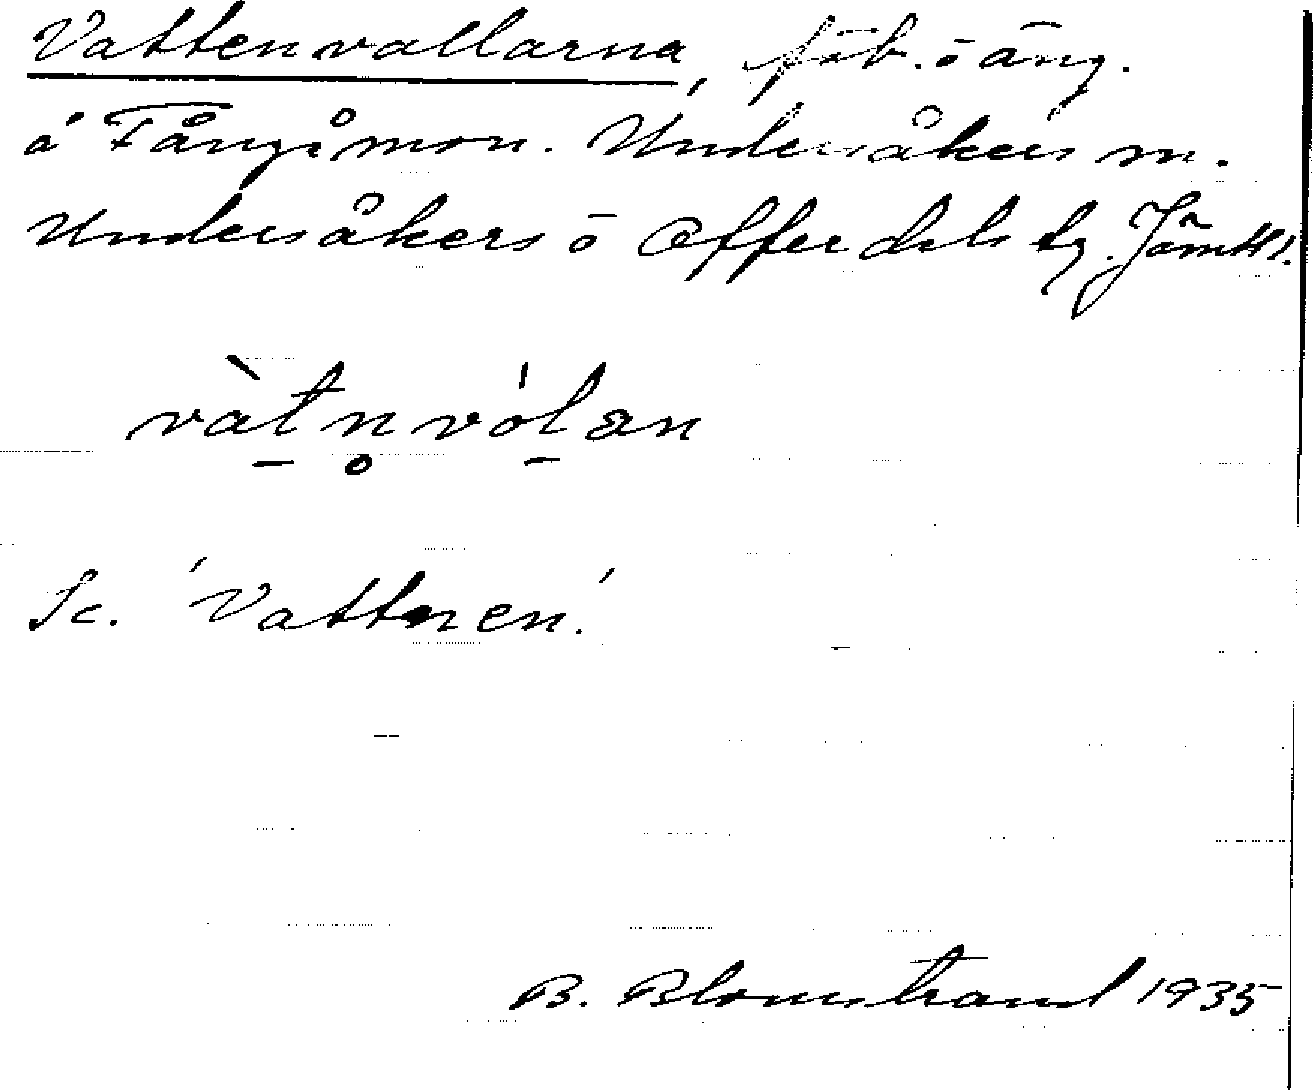 Vattenvallarna, fäb. o äng.
å Fångåmon. Undersåkers sn.
Undersåkers o Offerdals tg. Jämtl.
vàtn̥vólan
Se. 'Vattnen'.
B. Blomstrand 1935